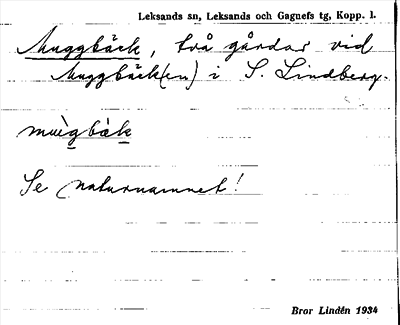 Leksands sn, Leksands och Gagnefs tg, Kopp. l.
Muggbäck, två gårdar vid
Muggbäck(en) i S. Lindberg.
muìgbàk
Se naturnamnet!
Bror Lindén 1934